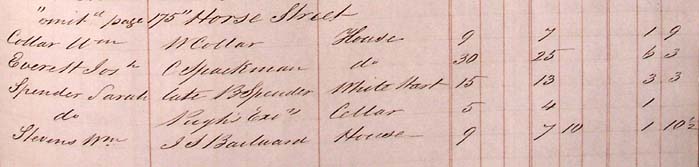 "omitᵈ page 175" Horse Street
Collar Wm W Collar House 9 7 1 9
Everett Josʰ C Spackman do 30 25 6 3
Spender Sarah late B Spender White Hart 15 13 3 3
do Pugh's Exoʳˢ Cellar 5 4 1
Stevens Wm J S Bailward House 9 7 10 1 10½